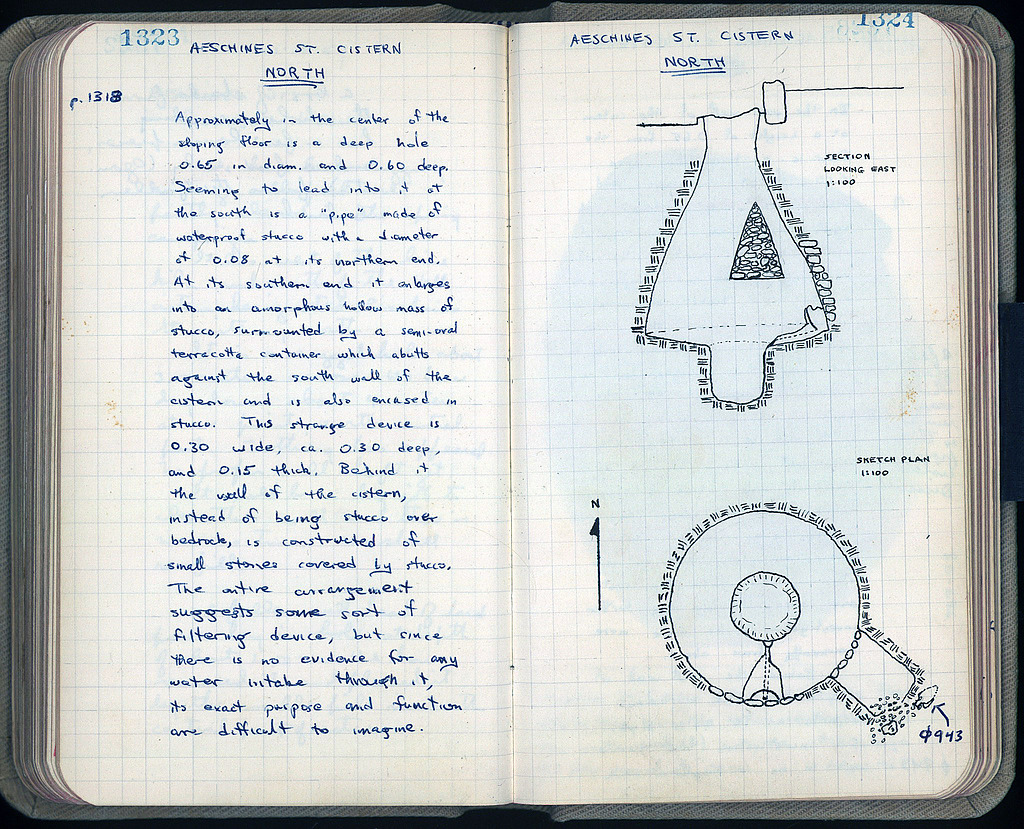 1323
AESCHINES ST. CISTERN
NORTH
p. 1318
Approximately in the center of the
sloping floor is a deep hole
0.65 in diam. and 0.60 deep.
Seeming to lead into it at
the south is a "pipe" made of
waterproof stucco with a diameter
of 0.08 at its northern end.
At its southern end it enlarges
into an amorphous hollow mass of
stucco, surmounted by a semi-oval
terracotta container which abutts
against the south wall of the
cistern and is also encased in
stucco. This strange device is
0.30 wide, ca. 0.30 deep,
and 0.15 thick. Behind it
the wall of the cistern,
instead of being stucco over
bedrock, is constructed of
small stones covered by stucco.
The entire arrangement
suggests some sort of
filtering device, but since
there is no evidence for any
water intake through it,
its exact purpose and function
are difficult to imagine.
1324
AESCHINES ST. CISTERN
NORTH
SECTION
LOOKING EAST
1:100
SKETCH PLAN
1:100
N
Φ943